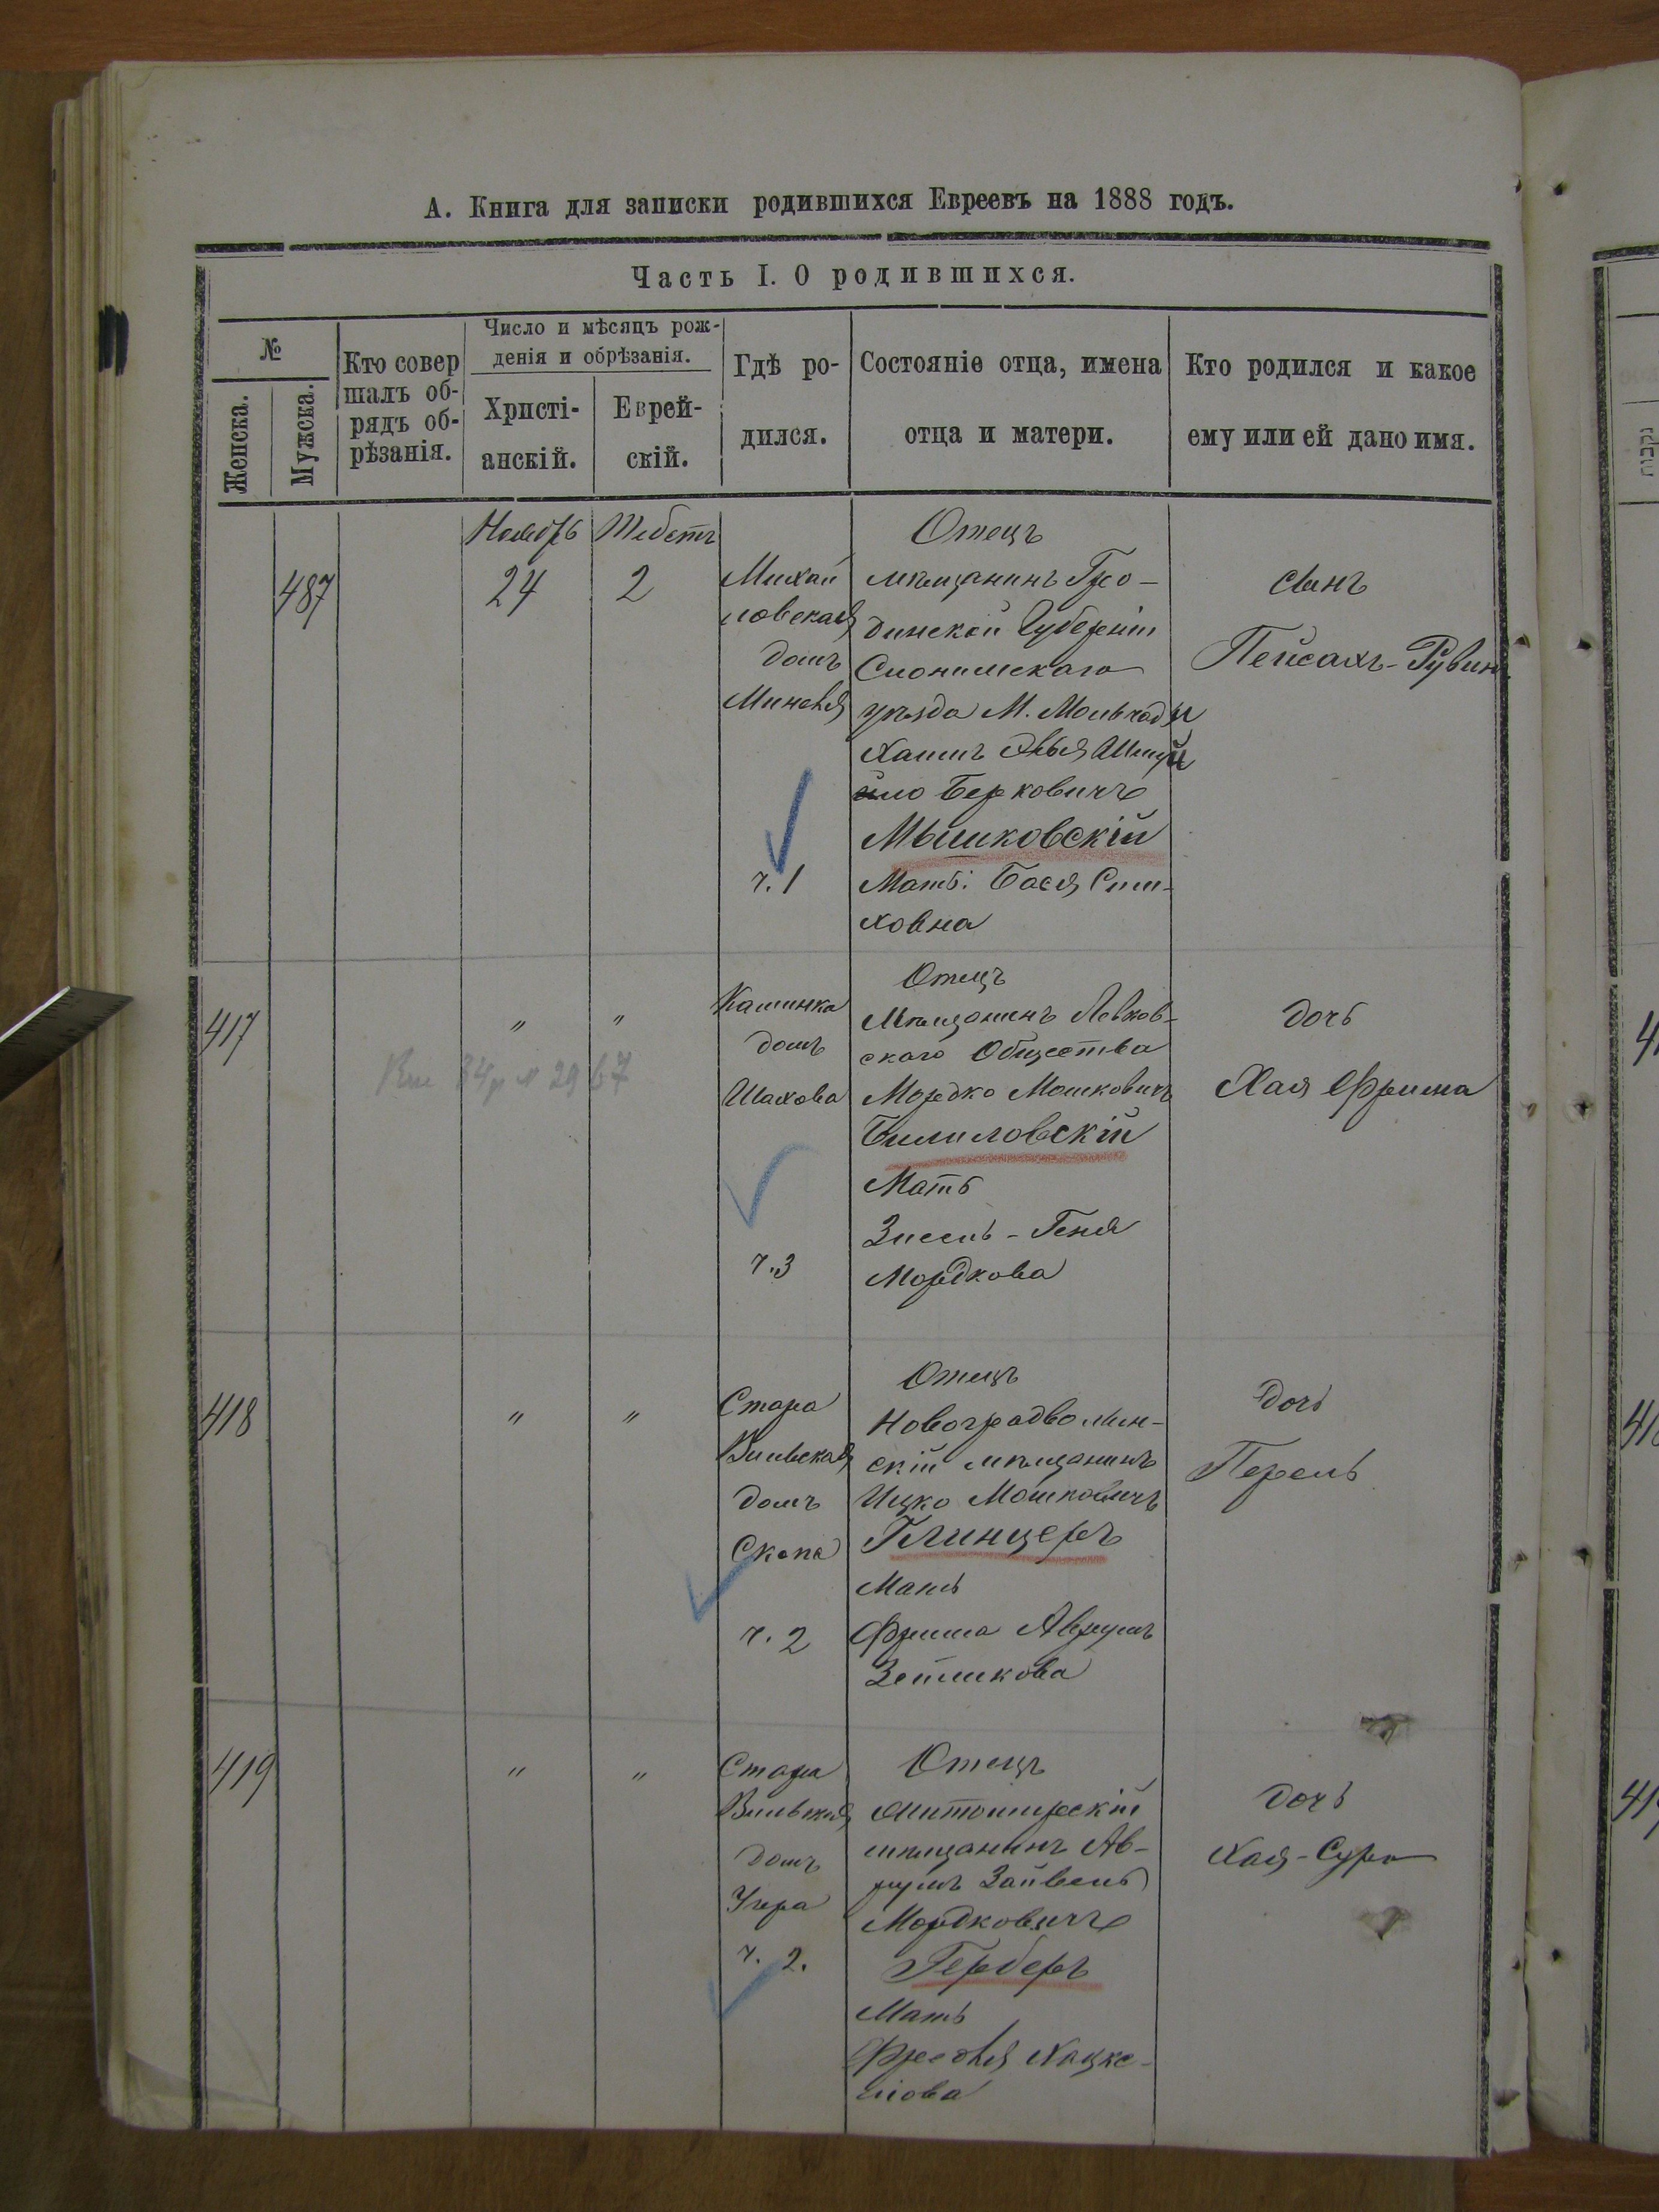 А. Книга для записки родившихся Евреевъ на 1888 годъ.
Часть I. О родившихся.
№
Женска.
Мужска.
Кто совер
шалъ об-
рядъ об-
рѣзанія.
Число и мѣсяцъ рож-
денія и обрѣзанія.
Христі-
анскій.
Еврей-
скій.
Гдѣ ро-
дился.
Состояніе отца, имена
отца и матери.
Кто родился и какое
ему или ей дано имя.
487
Ноябрь
24
Тебетъ
2
Михай
ловская
домъ
ч. 1
Отецъ
мѣщанинъ Гро-
дненской Губерніи
Слонимскаго
уѣзда М. Мольчади
Хаимъ Шмуй
ло Берковичъ
Мышковскій
Мать: Бася
ховна
сынъ
Пейсахъ-Рувин
417
"
"
домъ
Шахова
ч. 3
Отецъ
Мѣщанинъ Левков-
скаго Общества
Мордко Мошковичъ
Билиловскій
Мать
Зисель-Геня
Мордкова
дочь
Хая Фрима
418
"
"
Старо
Вильская
домъ
Скопа
ч. 2
Отецъ
Новоградволын-
скій мѣщанинъ
Ицко Мошковичъ
Глинцеръ
Мать
Фрима Аврумъ
Зейликова
дочь
Перель
419
"
"
Старо
Вильская
домъ
ч. 2.
Отецъ
Житомирскій
мѣщанинъ Ав-
румъ Зайвель
Мордковичъ
Герберъ
Мать
Фрейдя Хацке-
лова
дочь
Хая-Сура